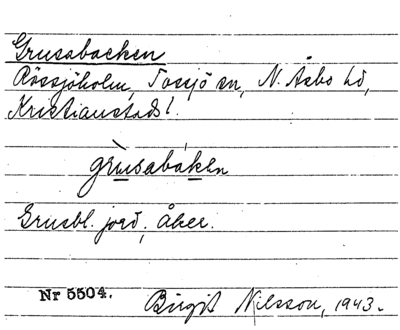 Grusabacken
Rössjöholm, Tossjö sn, N. Åsbo hd,
Kristianstads l.
grùsabáken
Grusbl. jord, åker.
Nr 5504. Birgit Nilsson, 1943.